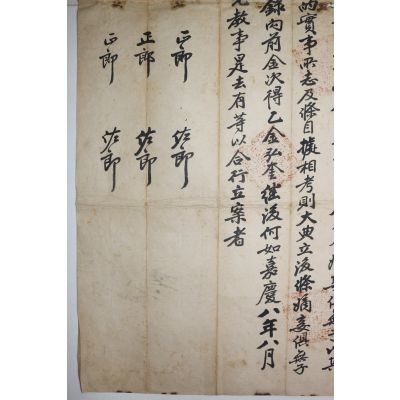 的實事所志及條目據相考則大典立後條嫡妾俱無子
錄內前金次得乙金弘奎繼後何如嘉慶八年八月
允教事是去有等以合行立案者
正郎 佐郎
正郎 佐郎
正郎 佐郎